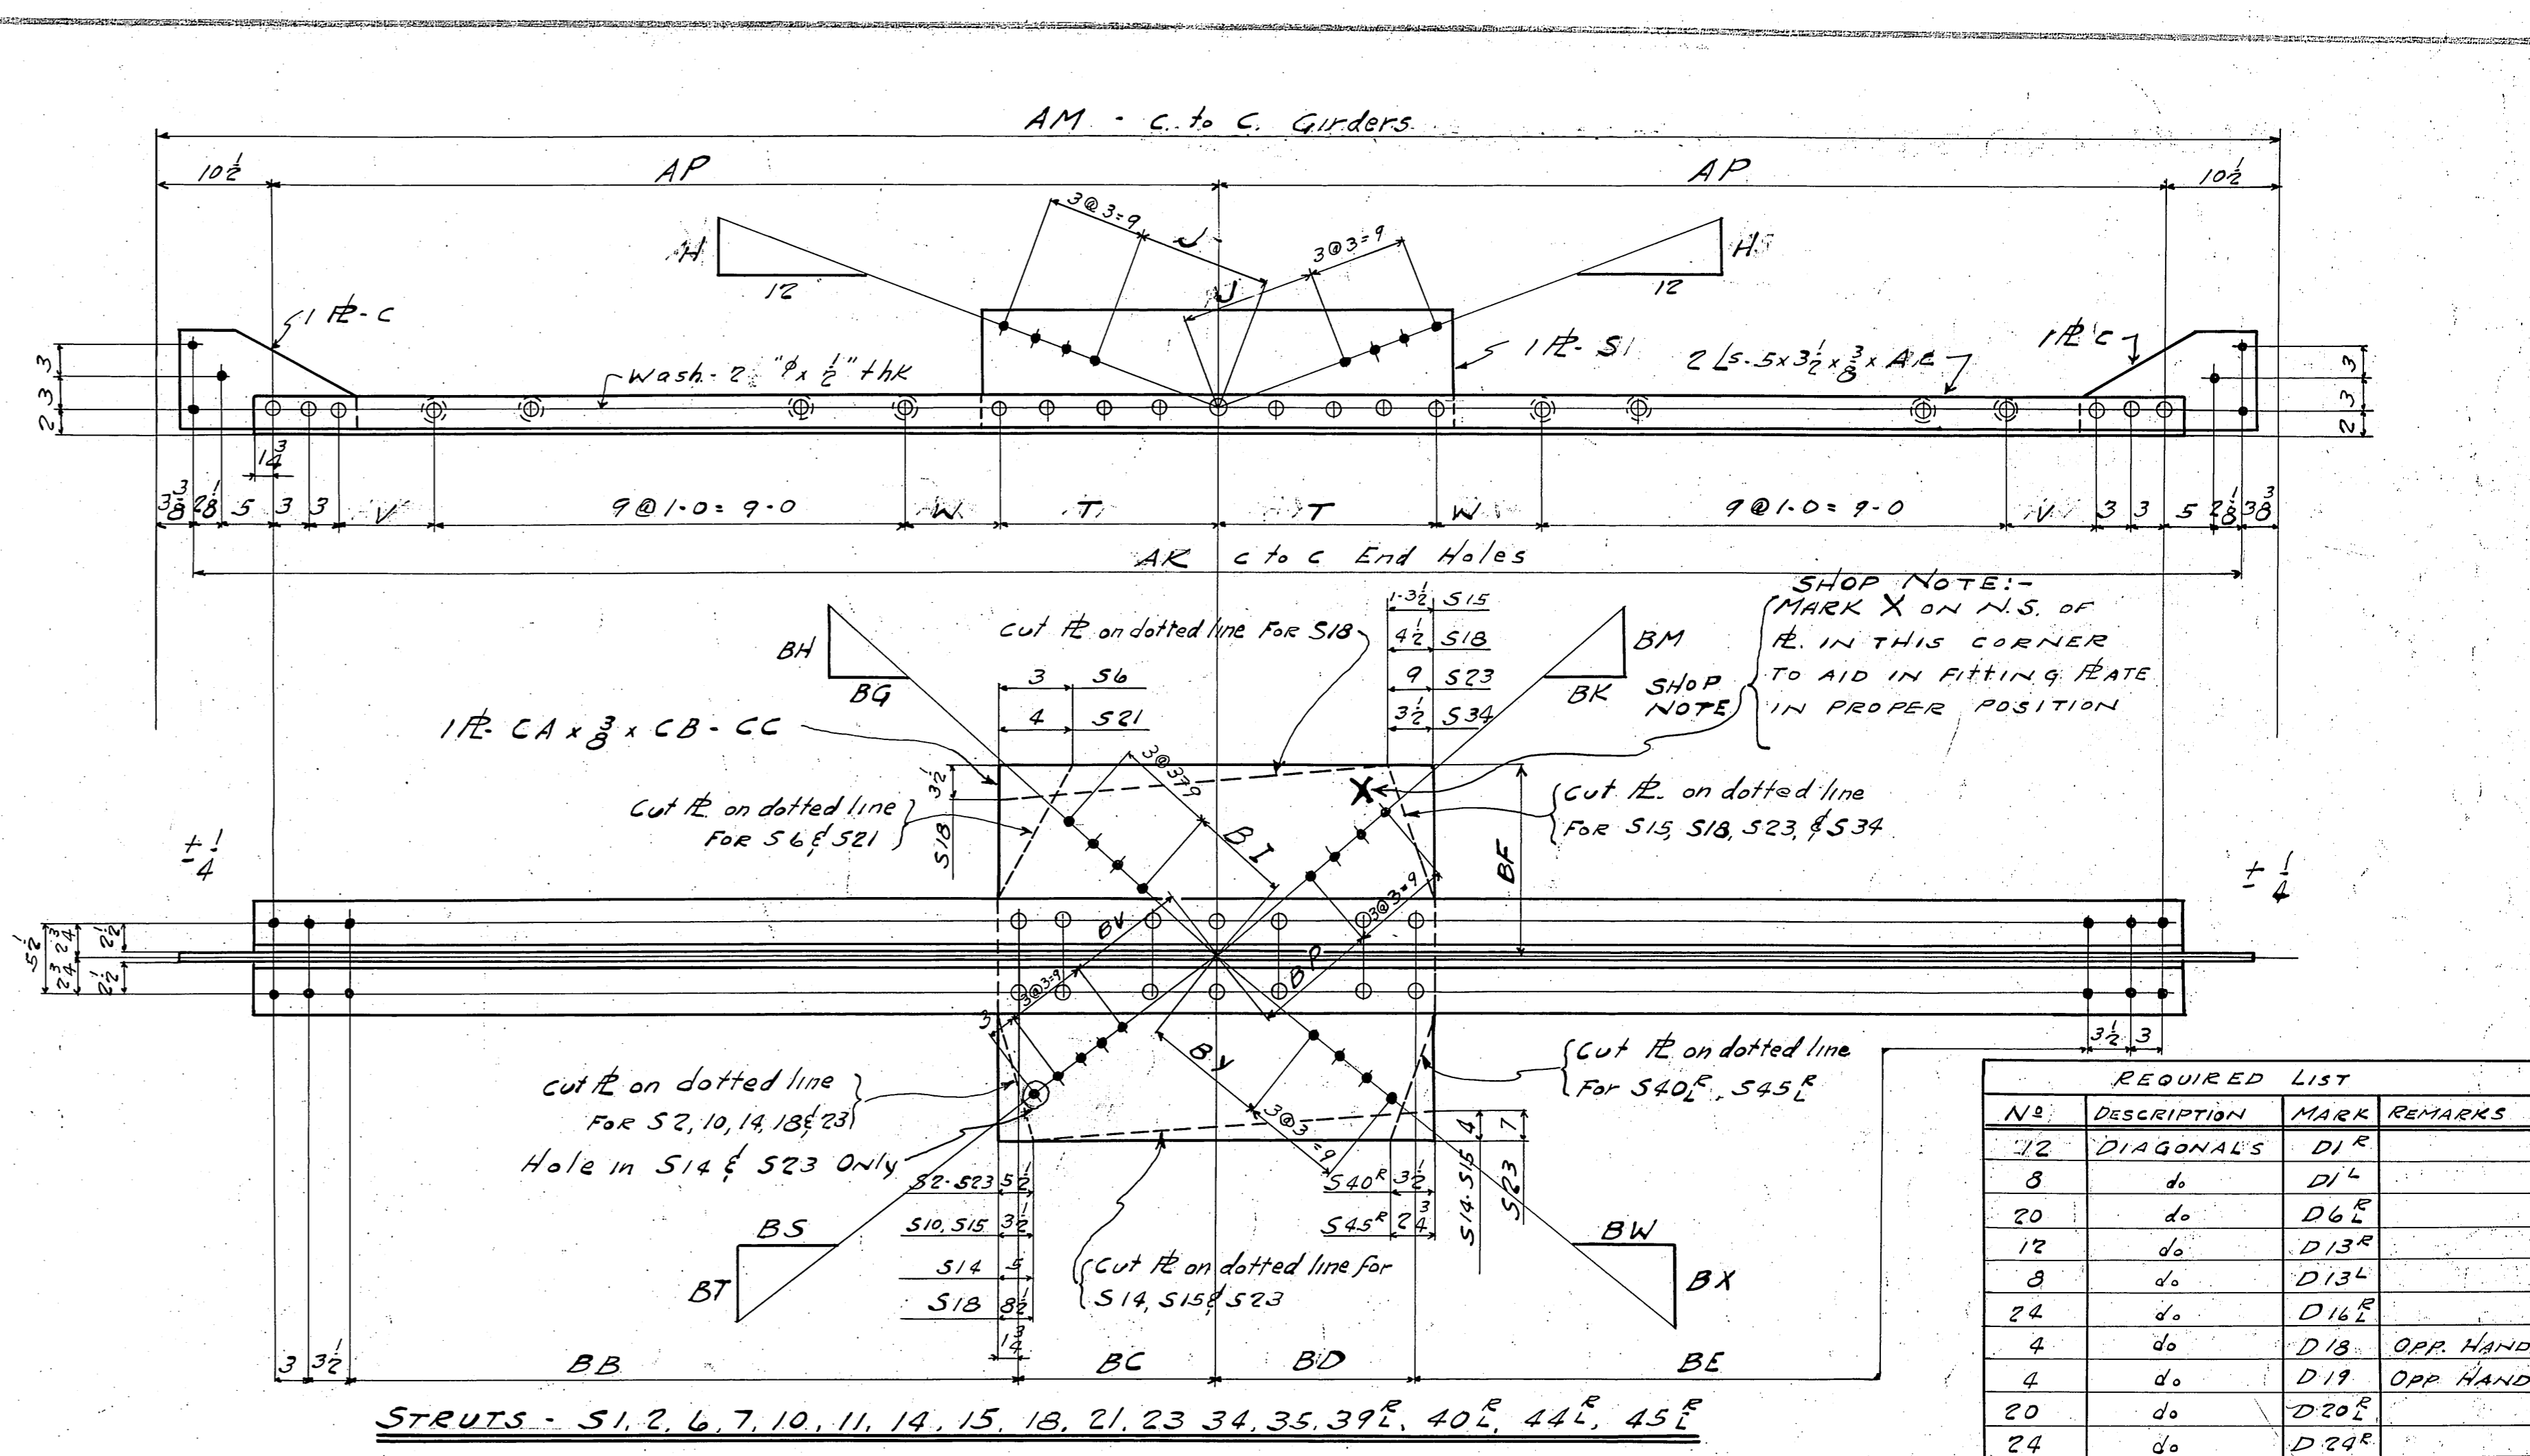 AM - C. to C. Girders
10½ AP AP 10½
3@3=9 J 3@3=9 J
H 12 H 12
1 PL - C
1 PL C
1 PL - S1
2 Ls - 5 x 3½ x ⅜ x AE
Wash - 2 "φ x ½" thk
3 3 2
3 3 2
1¾
3⅜ 2⅛ 5 3 3 V 9@1-0=9-0 W T T W 9@1-0=9-0 V 3 3 5 2⅛ 3⅜
AK C to C End Holes
SHOP NOTE:-
MARK X ON N.S. OF
PL. IN THIS CORNER
TO AID IN FITTING PLATE
IN PROPER POSITION
SHOP
NOTE
1-3½ S15
4½ S18
9 S23
3½ S34
Cut PL on dotted line For S18
BH BG
BM BK
3 S6
4 S21
1 PL - CA x ⅜ x CB - CC
3½ S18
3@3=9 BI
X
BF
Cut PL on dotted line
For S6 & S21
Cut PL. on dotted line
For S15, S18, S23, & S34
± ¼
± ¼
5½ 2¾ 2¾ 2½ 2½
BV 3@3=9 3
3@3=9 BP
BY 3@3=9
3½ 3
Cut PL on dotted line
For S2, 10, 14, 18 & 23
Hole in S14 & S23 Only
Cut PL on dotted line
For S40 R L, S45 R L
S2-S23 5½
S10, S15 3½
S14 5
S18 8½
1¾
S40R 3½
S45R 2¾
4 S14-S15
7 S23
BS BT
BW BX
Cut PL on dotted line for
S14, S15 & S23
3 3½ BB BC BD BE
STRUTS - S1, 2, 6, 7, 10, 11, 14, 15, 18, 21, 23 34, 35, 39 R L, 40 R L, 44 R L, 45 R L
REQUIRED LIST
No DESCRIPTION MARK REMARKS
12 DIAGONALS D1 R
8 do D1 L
20 do D6 R L
12 do D13 R
8 do D13 L
24 do D16 R L
4 do D18 OPP. HAND
4 do D19 OPP. HAND
20 do D20 R L
24 do D24 R